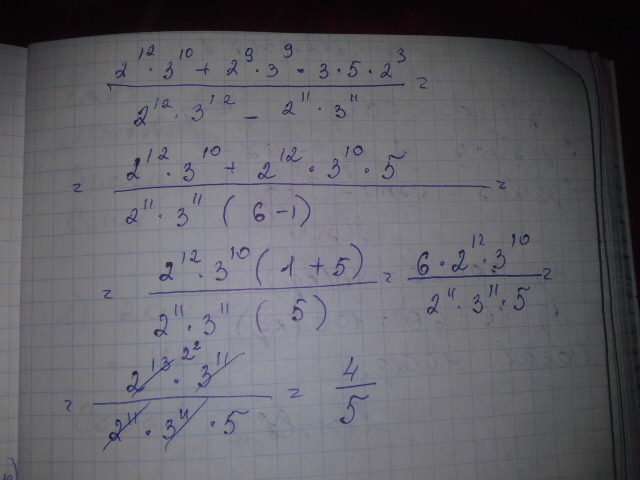 (2¹² · 3¹⁰ + 2⁹ · 3⁹ · 3 · 5 · 2³) / (2¹² · 3¹² − 2¹¹ · 3¹¹) =
= (2¹² · 3¹⁰ + 2¹² · 3¹⁰ · 5) / (2¹¹ · 3¹¹ (6 − 1)) =
= (2¹² · 3¹⁰ (1 + 5)) / (2¹¹ · 3¹¹ (5)) = (6 · 2¹² · 3¹⁰) / (2¹¹ · 3¹¹ · 5) =
= (2¹³ 2² · 3¹¹) / (2¹¹ · 3¹¹ · 5) = 4/5